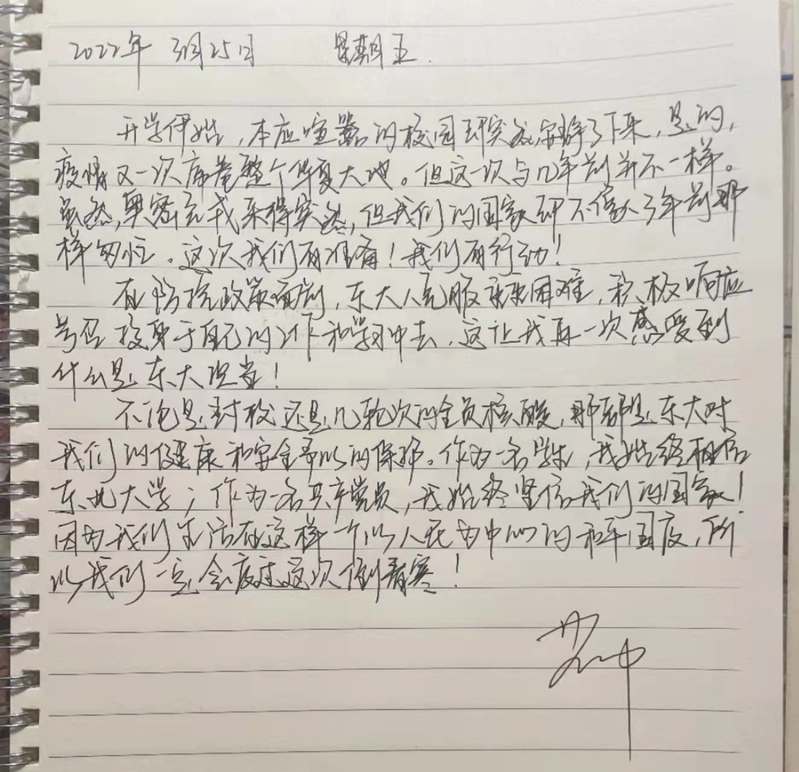 2022年 3月25日 星期五.
开学伊始,本应喧嚣的校园却突然安静了下来,是的,
疫情又一次席卷整个华夏大地。但这一次与几年前并不一样。
虽然,奥密克戎来得突然,但我们的国家却不像3年前那
样匆忙。这次我们有准备!我们有行动!
在防控政策面前,东大人克服重重困难,积极响应
号召投身于自己的工作和学习中去,这让我再一次感受到
什么是东大担当!
不论是封校还是几轮次的全员核酸,那都是东大对
我们的健康和安全予以的保护。作为一名学生,我始终相信
东北大学;作为一名共产党员,我始终坚信我们的国家!
因为我们生活在这样一个以人民为中心的和平国度,所
以我们一定会度过这次倒春寒!